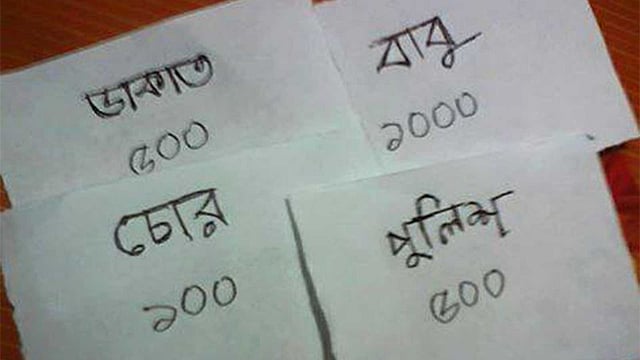 ডাকাত
৬০০
বাবু
১০০০
চোর
১০০
পুলিশ